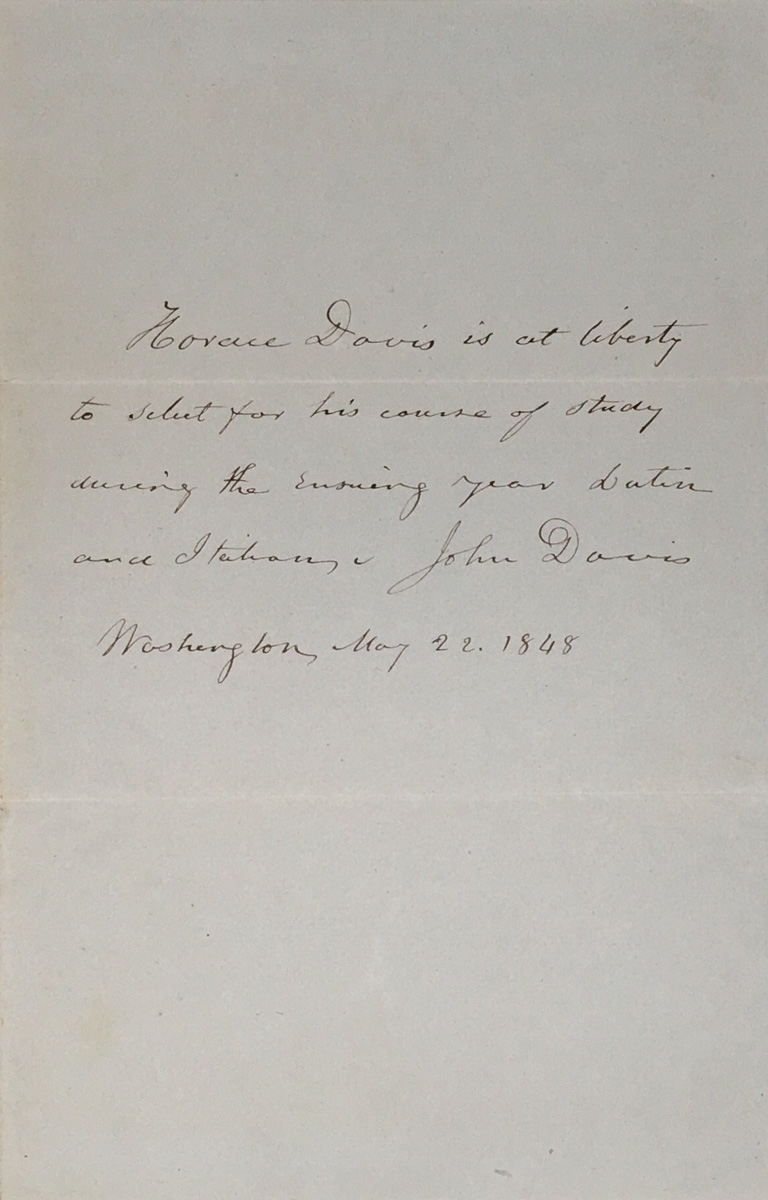 Horace Davis is at liberty
to select for his course of study
during the ensuing year Latin
and Italian, John Davis
Washington, May 22. 1848